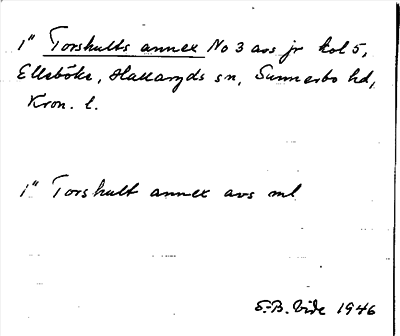 1" Torshults annex No 3 avs jr kol 5,
Elleböke, Hallaryds sn, Sunnerbo hd,
Kron. l.
1" Torshult annex avs ml
S.-B. Vide 1946